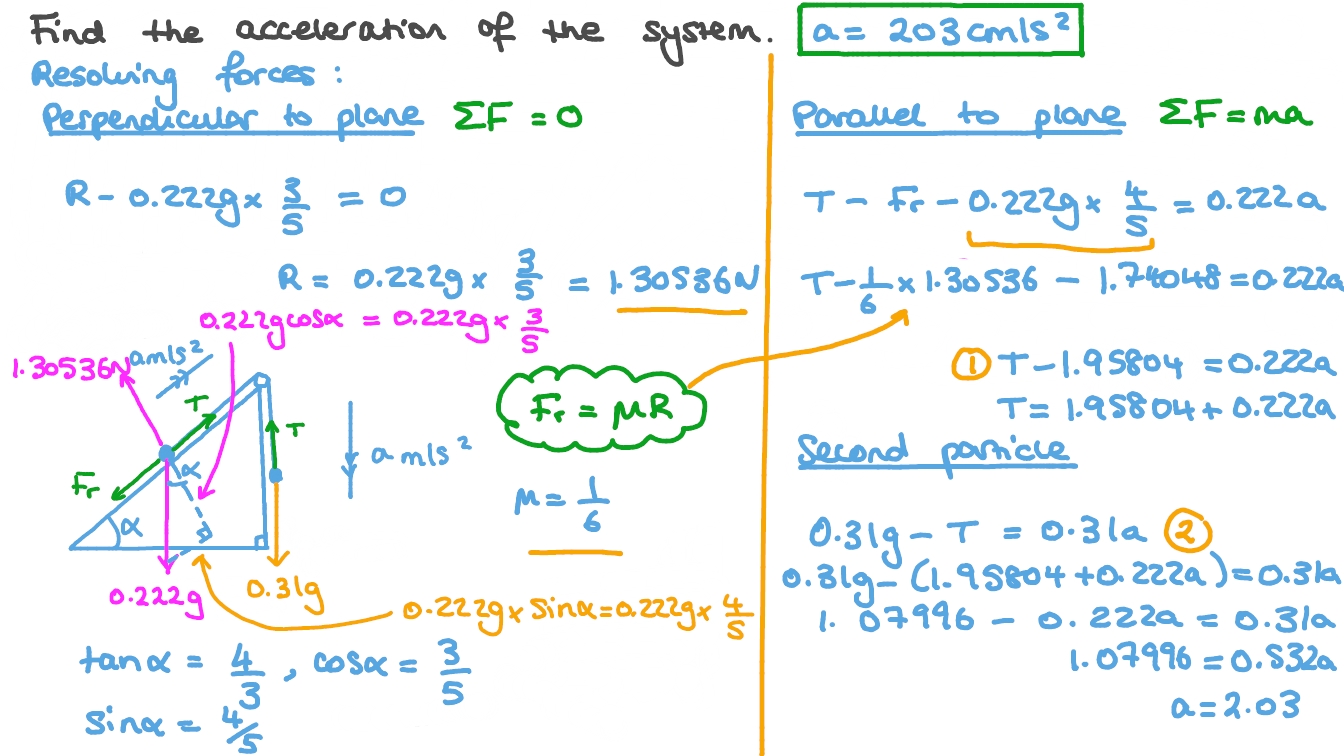 Find the acceleration of the system. a = 203 cm/s²
Resolving forces:
Perpendicular to plane ΣF = 0
R - 0.222g × 3/5 = 0
R = 0.222g × 3/5 = 1.30536N
0.222g cosα = 0.222g × 3/5
1.30536N
a m/s²
T
T
a m/s²
Fr
α
α
0.222g
0.31g
Fr = μR
μ = 1/6
0.222g × sinα = 0.222g × 4/5
tanα = 4/3, cosα = 3/5
sinα = 4/5
Parallel to plane ΣF = ma
T - Fr - 0.222g × 4/5 = 0.222a
T - 1/6 × 1.30536 - 1.74048 = 0.222a
① T - 1.95804 = 0.222a
T = 1.95804 + 0.222a
Second particle
0.31g - T = 0.31a ②
0.31g - (1.95804 + 0.222a) = 0.31a
1.07996 - 0.222a = 0.31a
1.07996 = 0.532a
a = 2.03